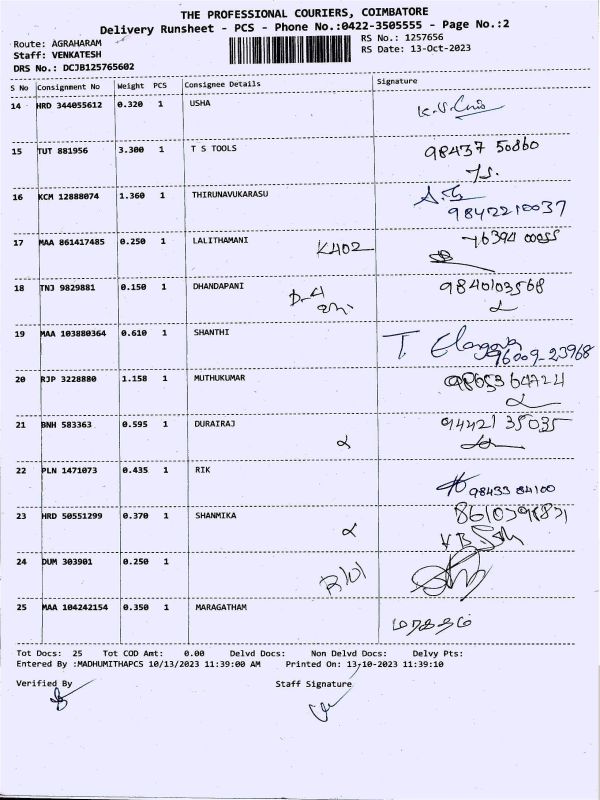 THE PROFESSIONAL COURIERS, COIMBATORE
Delivery Runsheet - PCS - Phone No.:0422-3505555 - Page No.:2
Route: AGRAHARAM
RS No.: 1257656
Staff: VENKATESH
RS Date: 13-Oct-2023
DRS No.: DCJB125765602
S No Consignment No Weight PCS Consignee Details Signature
14 HRD 344055612 0.320 1 USHA
15 TUT 881956 3.300 1 T S TOOLS 98437 50860
16 KCM 12888074 1.360 1 THIRUNAVUKARASU
9842210037
17 MAA 861417485 0.250 1 LALITHAMANI K402 76394 00055
18 TNJ 9829881 0.150 1 DHANDAPANI D-4 9840103568
19 MAA 103880364 0.610 1 SHANTHI T.
96009-23968
20 RJP 3228880 1.158 1 MUTHUKUMAR 98653 64724
21 BNH 583363 0.595 1 DURAIRAJ 94421 35035
22 PLN 1471073 0.435 1 RIK 98433 84100
23 HRD 50551299 0.370 1 SHANMIKA
24 DUM 303901 0.250 1
25 MAA 104242154 0.350 1 MARAGATHAM மரகதம்
Tot Docs: 25 Tot COD Amt: 0.00 Delvd Docs: Non Delvd Docs: Delvy Pts:
Entered By :MADHUMITHAPCS 10/13/2023 11:39:00 AM Printed On: 13-10-2023 11:39:10
Verified By Staff Signature